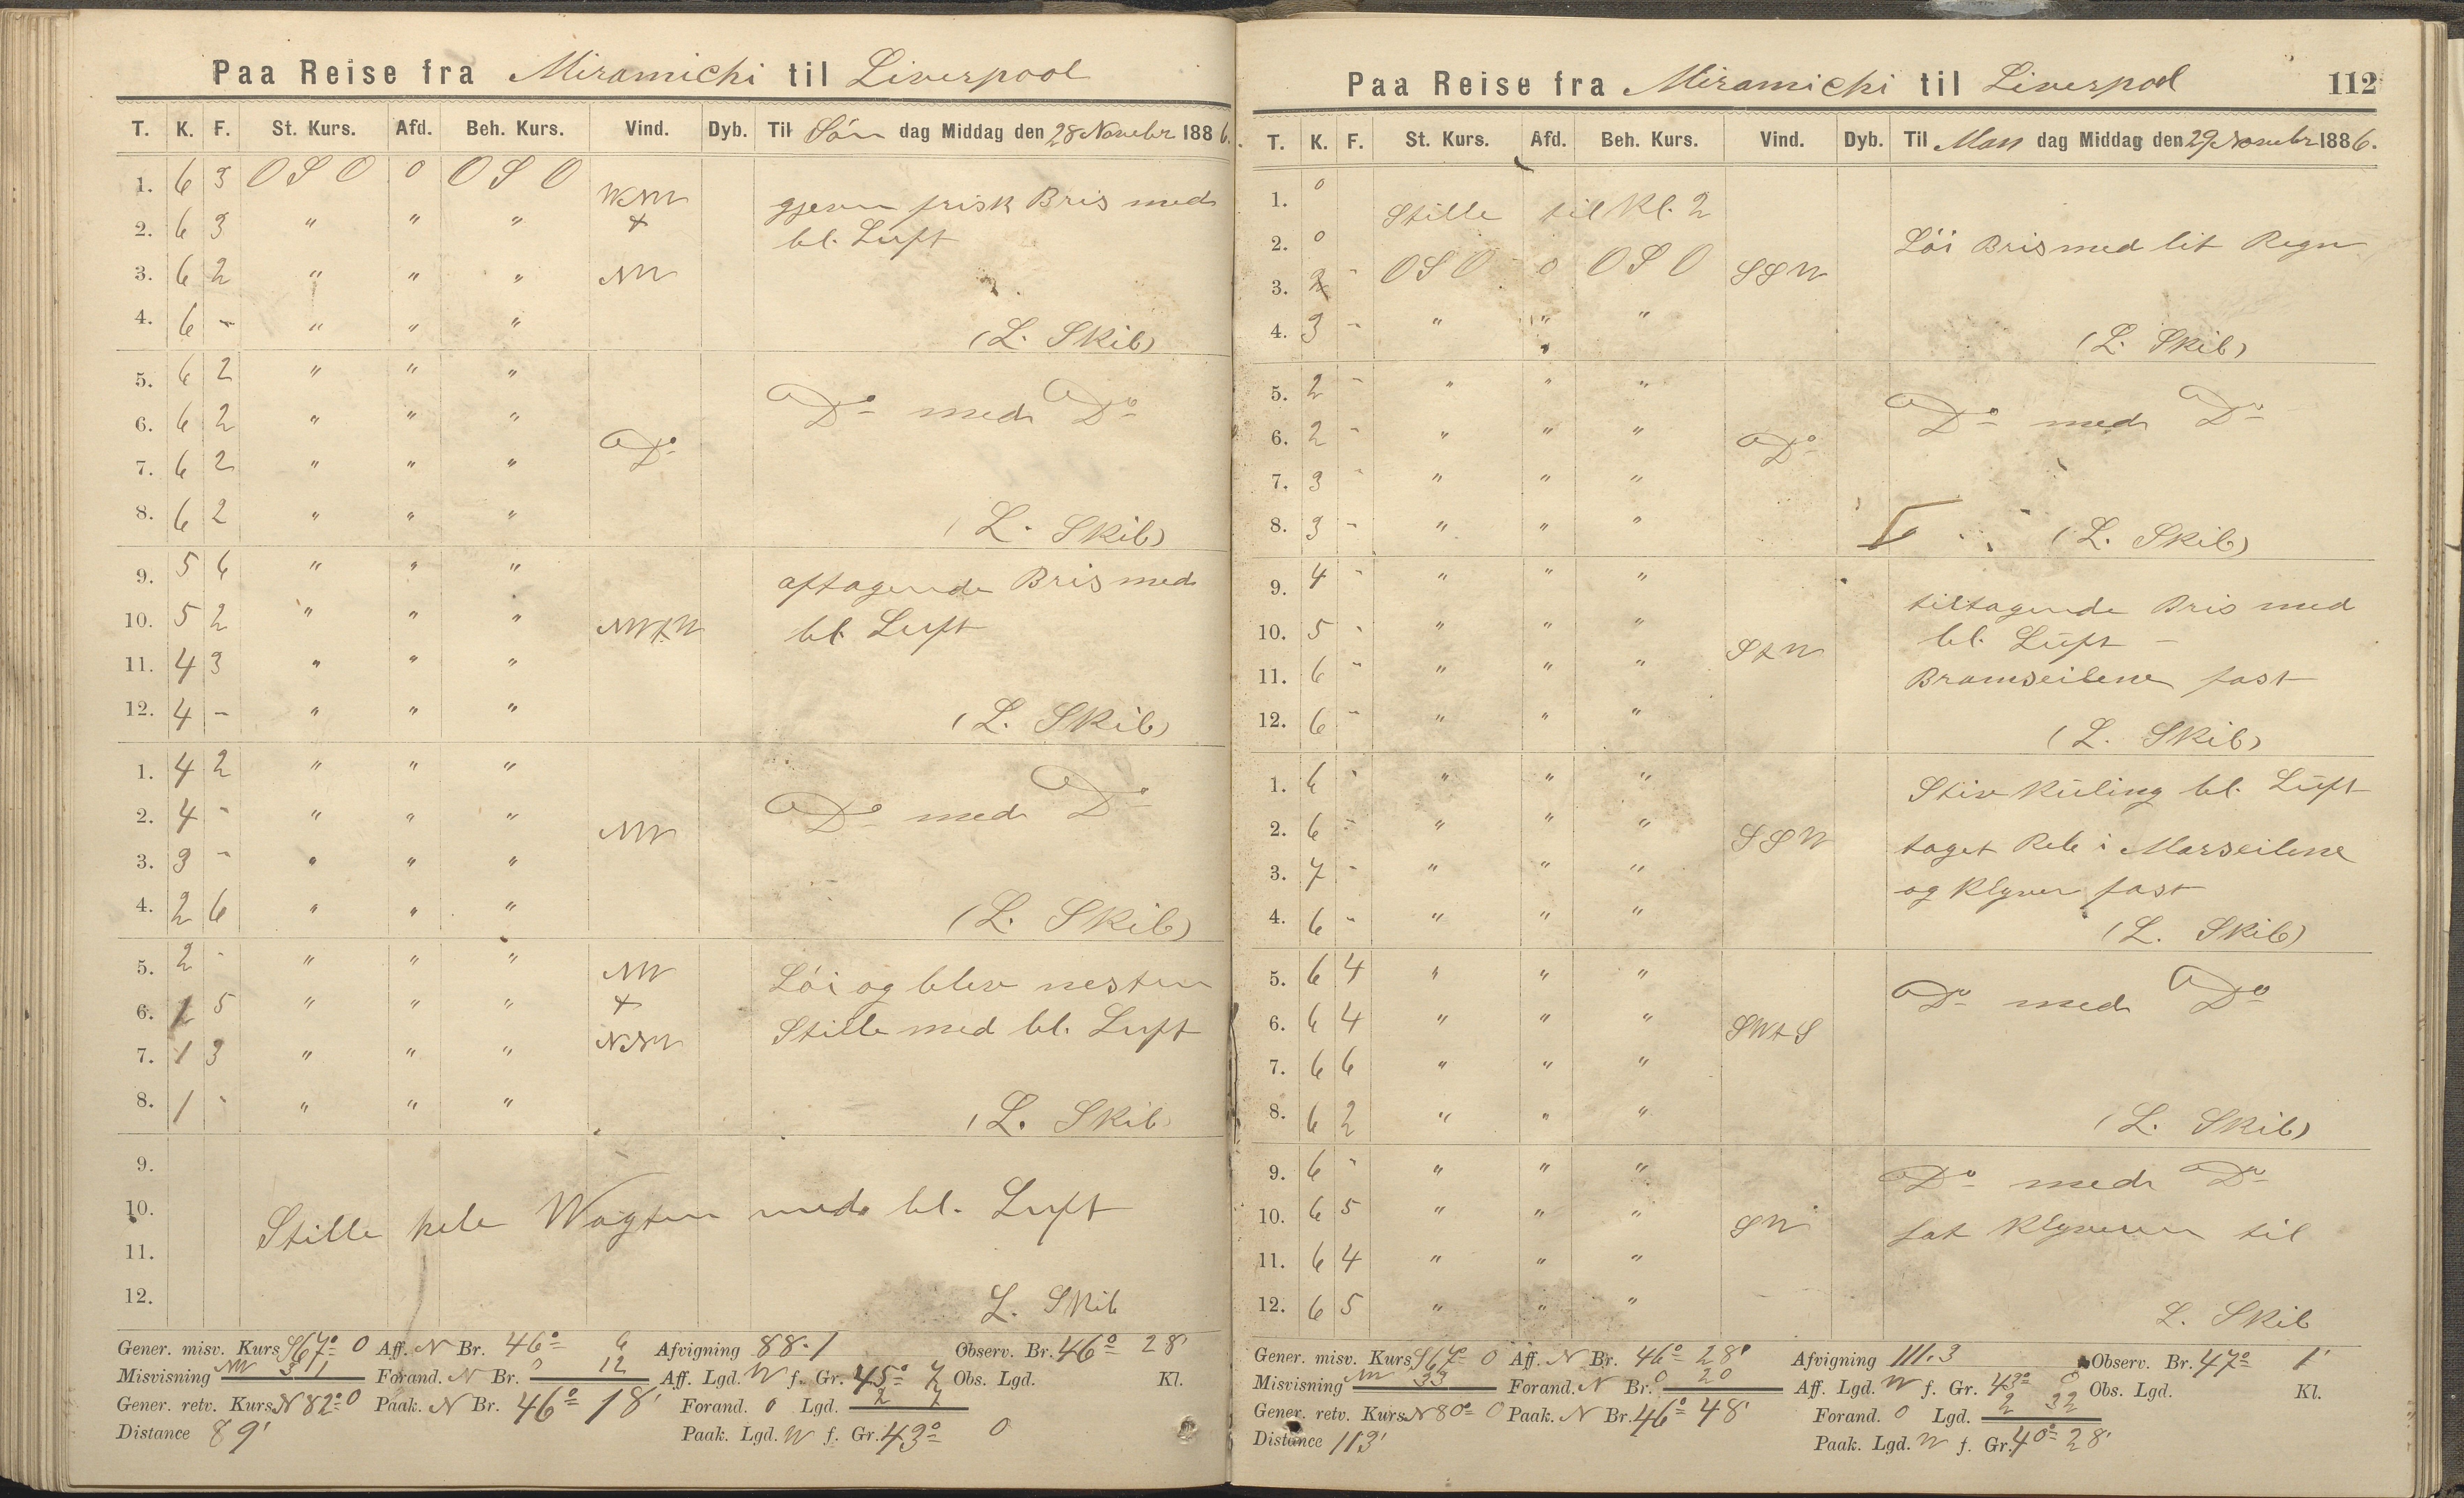 Paa Reise fra Miramichi til Liverpool
T. K. F. St. Kurs. Afd. Beh. Kurs. Vind. Dyb. Til Søn dag Middag den 28 Novebr 1886.
1. 6 3 OSO 0 OSO WNW gjevn frisk Bris med
2. 6 3 " " " + bl. Luft
3. 6 2 " " " NW
4. 6 - " " " (L. Skib)
5. 6 2 " " "
6. 6 2 " " " Do med Do
7. 6 2 " " " Do
8. 6 2 " " " (L. Skib)
9. 5 6 " " " aftagende Bris med
10. 5 2 " " " NWtW bl. Luft
11. 4 3 " " "
12. 4 - " " " (L. Skib)
1. 4 2 " " "
2. 4 - " " " NW Do med Do
3. 3 - " " "
4. 2 6 " " " (L. Skib)
5. 2 - " " " NW Løi og blev nesten
6. 1 5 " " " + Stille med bl. Luft
7. 1 3 " " " NNW
8. 1 - " " " (L. Skib
9.
10. Stille hele Wagten med bl. Luft
11.
12. L. Skib
Gener. misv. Kurs S67° O Aff. N Br. 46° 6 Afvigning 88.1 Observ. Br. 46° 28'
Misvisning NW Forand. N Br. 0 12 Aff. Lgd. W f. Gr. 45° 7 Obs. Lgd. Kl.
Gener. retv. Kurs N82° O Paak. N Br. 46° 18' Forand. O Lgd. 2 7
Distance 89' Paak. Lgd. W f. Gr. 43° 0
Paa Reise fra Miramichi til Liverpool 112
T. K. F. St. Kurs. Afd. Beh. Kurs. Vind. Dyb. Til Man dag Middag den 29 Novebr 1886.
1. 0 Stille til Kl. 2
2. 0 Løi Bris med lit Regn
3. 2 - OSO 0 OSO SSW
4. 3 - " " " (L. Skib)
5. 2 - " " " Do med Do
6. 2 - " " " Do
7. 3 - " " "
8. 3 - " " " (L. Skib)
9. 4 - " " " tiltagende Bris med
10. 5 - " " " StW bl. Luft -
11. 6 - " " " Bramseilene fast
12. 6 - " " " (L. Skib)
1. 6 - " " " Stiv Kuling bl. Luft
2. 6 - " " " SSW taget Reb i Marseilene
3. 7 - " " " og Klyver fast
4. 6 - " " " (L. Skib)
5. 6 4 " " " Do med Do
6. 6 4 " " " SWtS
7. 6 6 " " "
8. 6 2 " " " (L. Skib)
9. 6 - " " " Do med Do
10. 6 5 " " " SW sat Klyveren til
11. 6 4 " " "
12. 6 5 " " " L. Skib
Gener. misv. Kurs S67° O Aff. N Br. 46° 28' Afvigning 111.3 Observ. Br. 47° 1'
Misvisning NW 33 Forand. N Br. 0 20 Aff. Lgd. W f. Gr. 43° 0 Obs. Lgd. Kl.
Gener. retv. Kurs N80° O Paak. N Br. 46° 48' Forand. O Lgd. 2 32
Distance 113' Paak. Lgd. W f. Gr. 40° 28'